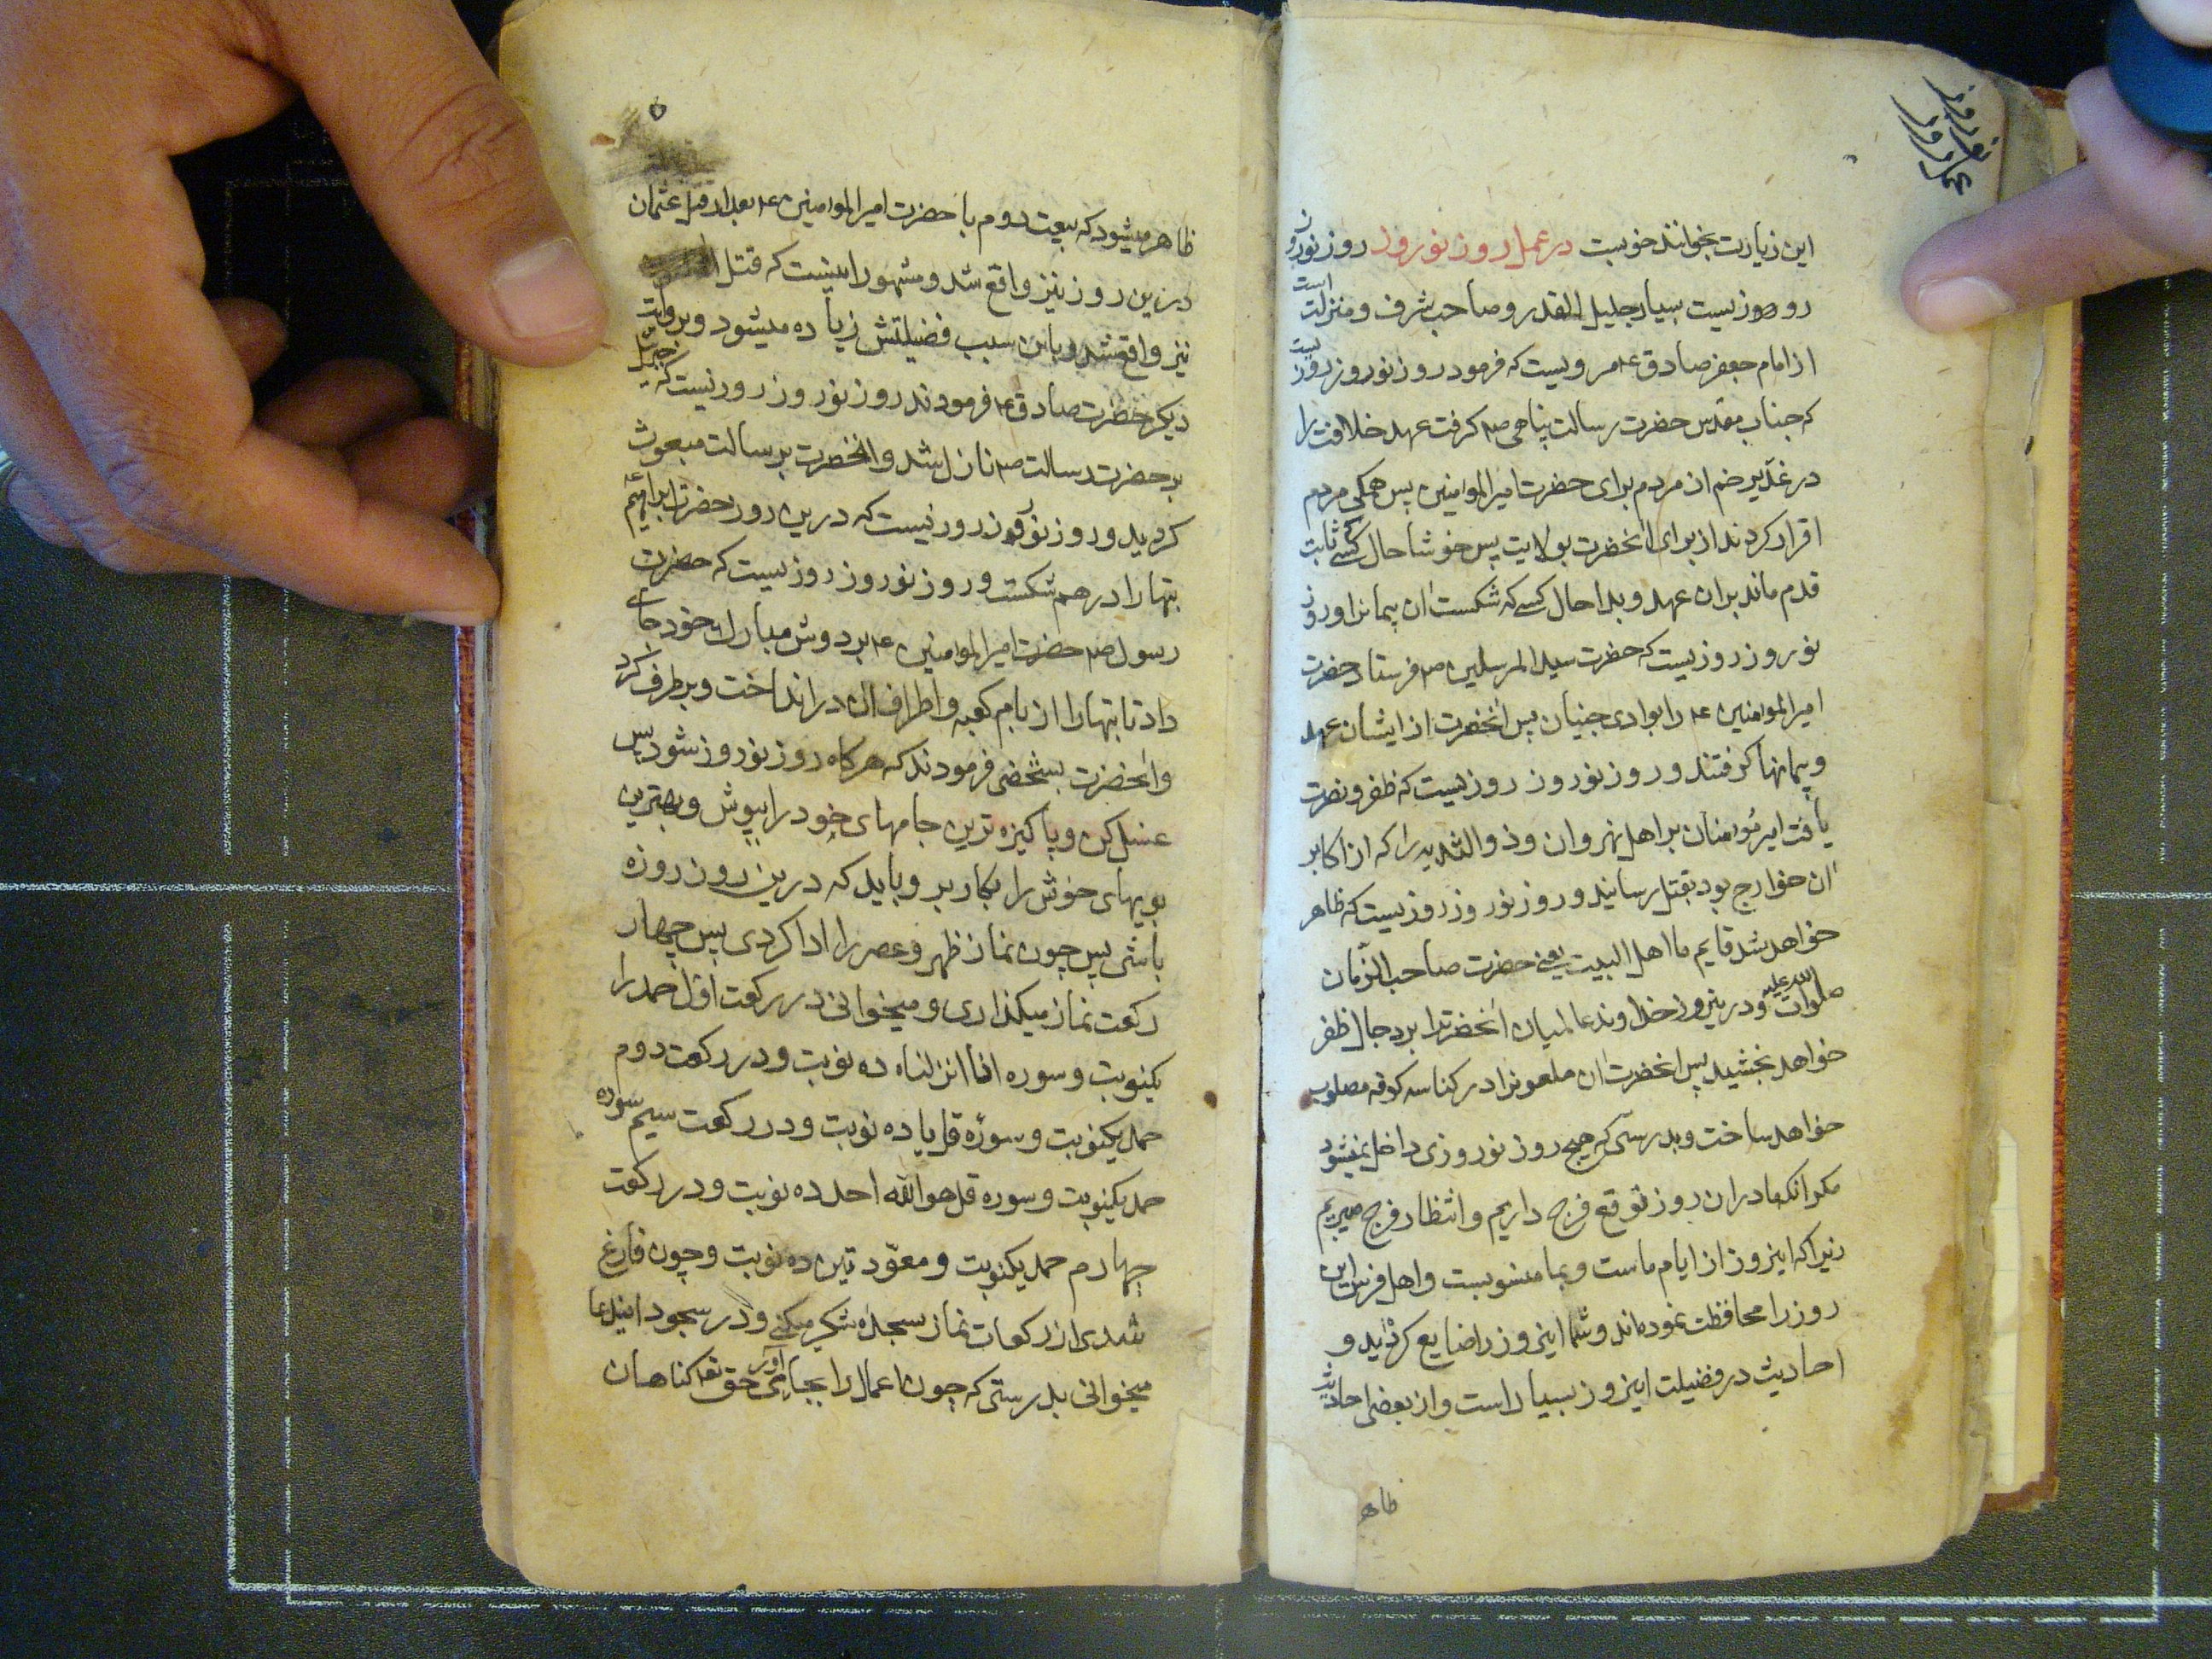 عمل روز
نوروز
این زیارت بخوانند خوبست در عمل روز نوروز روز نوروز
روزیست بسیار جلیل القدر و صاحب شرف و منزلت است
از امام جعفر صادق ع مرویست که فرمود روز نوروز روزیست
که جناب مقدس حضرت رسالت پناهی ص گرفت عهد خلافت را
در غدیر خم از مردم برای حضرت امیرالموءمنین پس همکی مردم
اقرار کردند از برای انحضرت بولایت پس خوشا حال کسی ثابت
قدم ماند بران عهد و بدا حال کسے که شکست ان پیمانرا و روز
نوروز روزیست که حضرت سیدالمرسلین ص فرستاد حضرت
امیرالموءمنین ع را بوادی جنیان پس انحضرت از ایشان عهد
و پیمانها کرفتند و روز نوروز روزیست که ظفر و نصرت
یافت امیر مؤمنان بر اهل نهروان و ذوالثدیه را که از اکابر
ان خوارج بود بقتل رسانید و روز نوروز روزیست که ظاهر
خواهد شد قایم ما اهل البیت یعنی حضرت صاحب الزمان
صلوات الله علیه و درینروز خداوند عالمیان انحضرترا بر دجال ظفر
خواهد بخشید پس انحضرت ان ملعونرا در کناسه کوفه مصلوب
خواهد ساخت و بدرستی که هیچ روز نوروزی داخل نمیشود
مکر انکه ما در ان روز توقع فرج داریم و انتظار فرج میبریم
زیرا که اینروز از ایام ماست و بما منسوبست و اهل فرس این
روز را محافظت نموده‌اند و شما اینروز را ضایع کرداید و
احادیث در فضیلت اینروز بسیار است و از بعضی احادیث
ظاهر
ظاهر میشود که بیعت دوم با حضرت امیرالموءمنین ع بعد از قتل عثمان
درین روز نیز واقع شد و مشهور اینست که قتل
نیز واقع شد و باین سبب فضیلتش زیاده میشود و بروایت
دیکر حضرت صادق ع فرمودند روز نوروز روزیست که جبرئیل
بر حضرت رسالت ص نازل شد و انحضرت برسالت مبعوث
کردید و روز نوروز روزیست که درین روز حضرت ابراهیم ع
بتها را درهم شکست و روز نوروز روزیست که حضرت
رسول ص حضرت امیرالموءمنین ع بر دوش مبارک خود جاے
داد تا بتها را از بام کعبه و اطراف ان در انداخت و برطرف کرد
و انحضرت بشخصی فرمودند که هرکاه روز نوروز شود پس
غسل کن و پاکیزه ترین جامهای خود را بپوش و بهترین
بویهای خوش را بکار بر و باید که درین روز روزه
باشی پس چون نماز ظهر و عصر را ادا کردی پس چهار
رکعت نماز میکذاری و میخوانی در رکعت اول حمد را
یکنوبت و سوره انا انزلناه ده نوبت و در رکعت دوم
حمد یکنوبت و سوره قل یا ده نوبت و در رکعت سیم سوره
حمد یکنوبت و سوره قل هو الله احد ده نوبت و در رکعت
چهارم حمد یکنوبت و معوّذتین ده نوبت و چون فارغ
شدی از رکعات نماز سجده شکر میکنے و در سجود ایندعا
میخوانی بدرستی که چون اعمال را بجا می اوری حق تعم کناهان